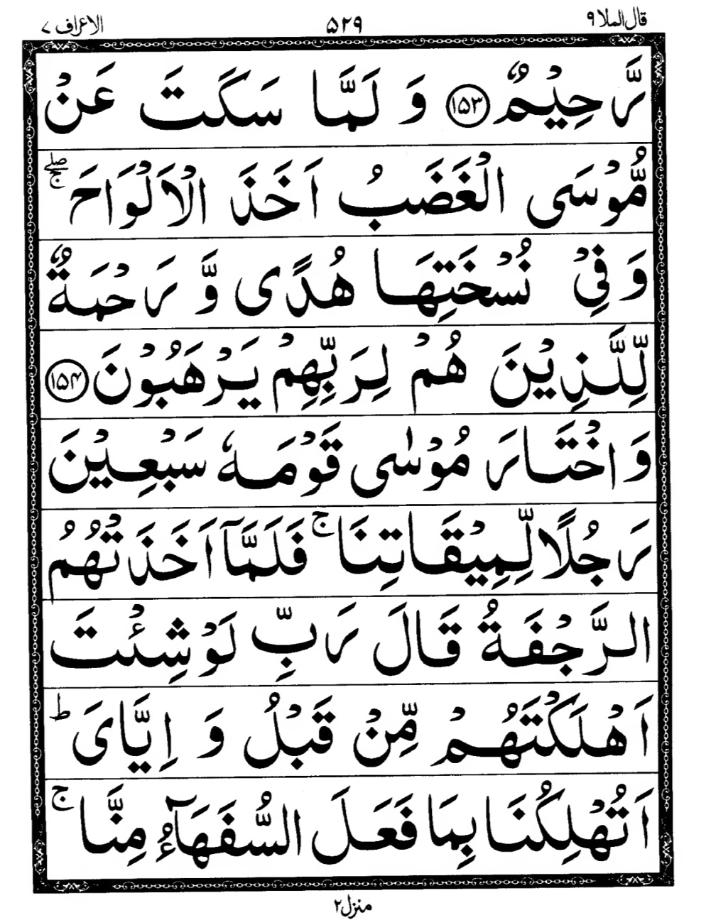 قال الملا ٩ ۵۲۹ الاعراف ٧
رَّحِيْمٌ ﴿۱۵۳﴾ وَ لَمَّا سَكَتَ عَنْ
مُّوْسَى الْغَضَبُ اَخَذَ الْاَلْوَاحَ ۚۖ
وَ فِيْ نُسْخَتِهَا هُدًى وَّ رَحْمَةٌ
لِّلَّذِيْنَ هُمْ لِرَبِّهِمْ يَرْهَبُوْنَ ﴿۱۵۴﴾
وَ اخْتَارَ مُوْسٰى قَوْمَهٗ سَبْعِيْنَ
رَجُلًا لِّمِيْقَاتِنَا ۚ فَلَمَّاۤ اَخَذَتْهُمُ
الرَّجْفَةُ قَالَ رَبِّ لَوْ شِئْتَ
اَهْلَكْتَهُمْ مِّنْ قَبْلُ وَ اِيَّايَ ؕ
اَتُهْلِكُنَا بِمَا فَعَلَ السُّفَهَآءُ مِنَّا ۚ
منزل ۲